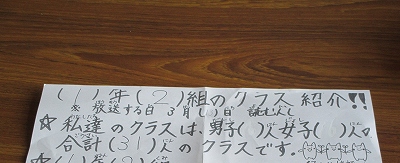 (1)年(2)組のクラス紹介!!
※放送する日 3月( )日 読む人(
☆私達のクラスは、男子( )人女子( )人♡
合計(31)人のクラスです。